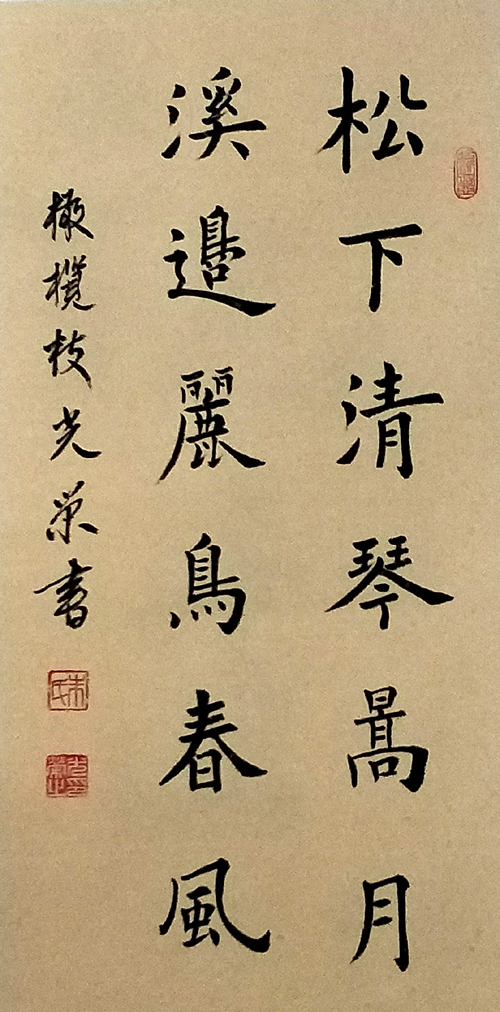 松下清琴暠月
溪邉麗鳥春風
橄欖枝光榮書